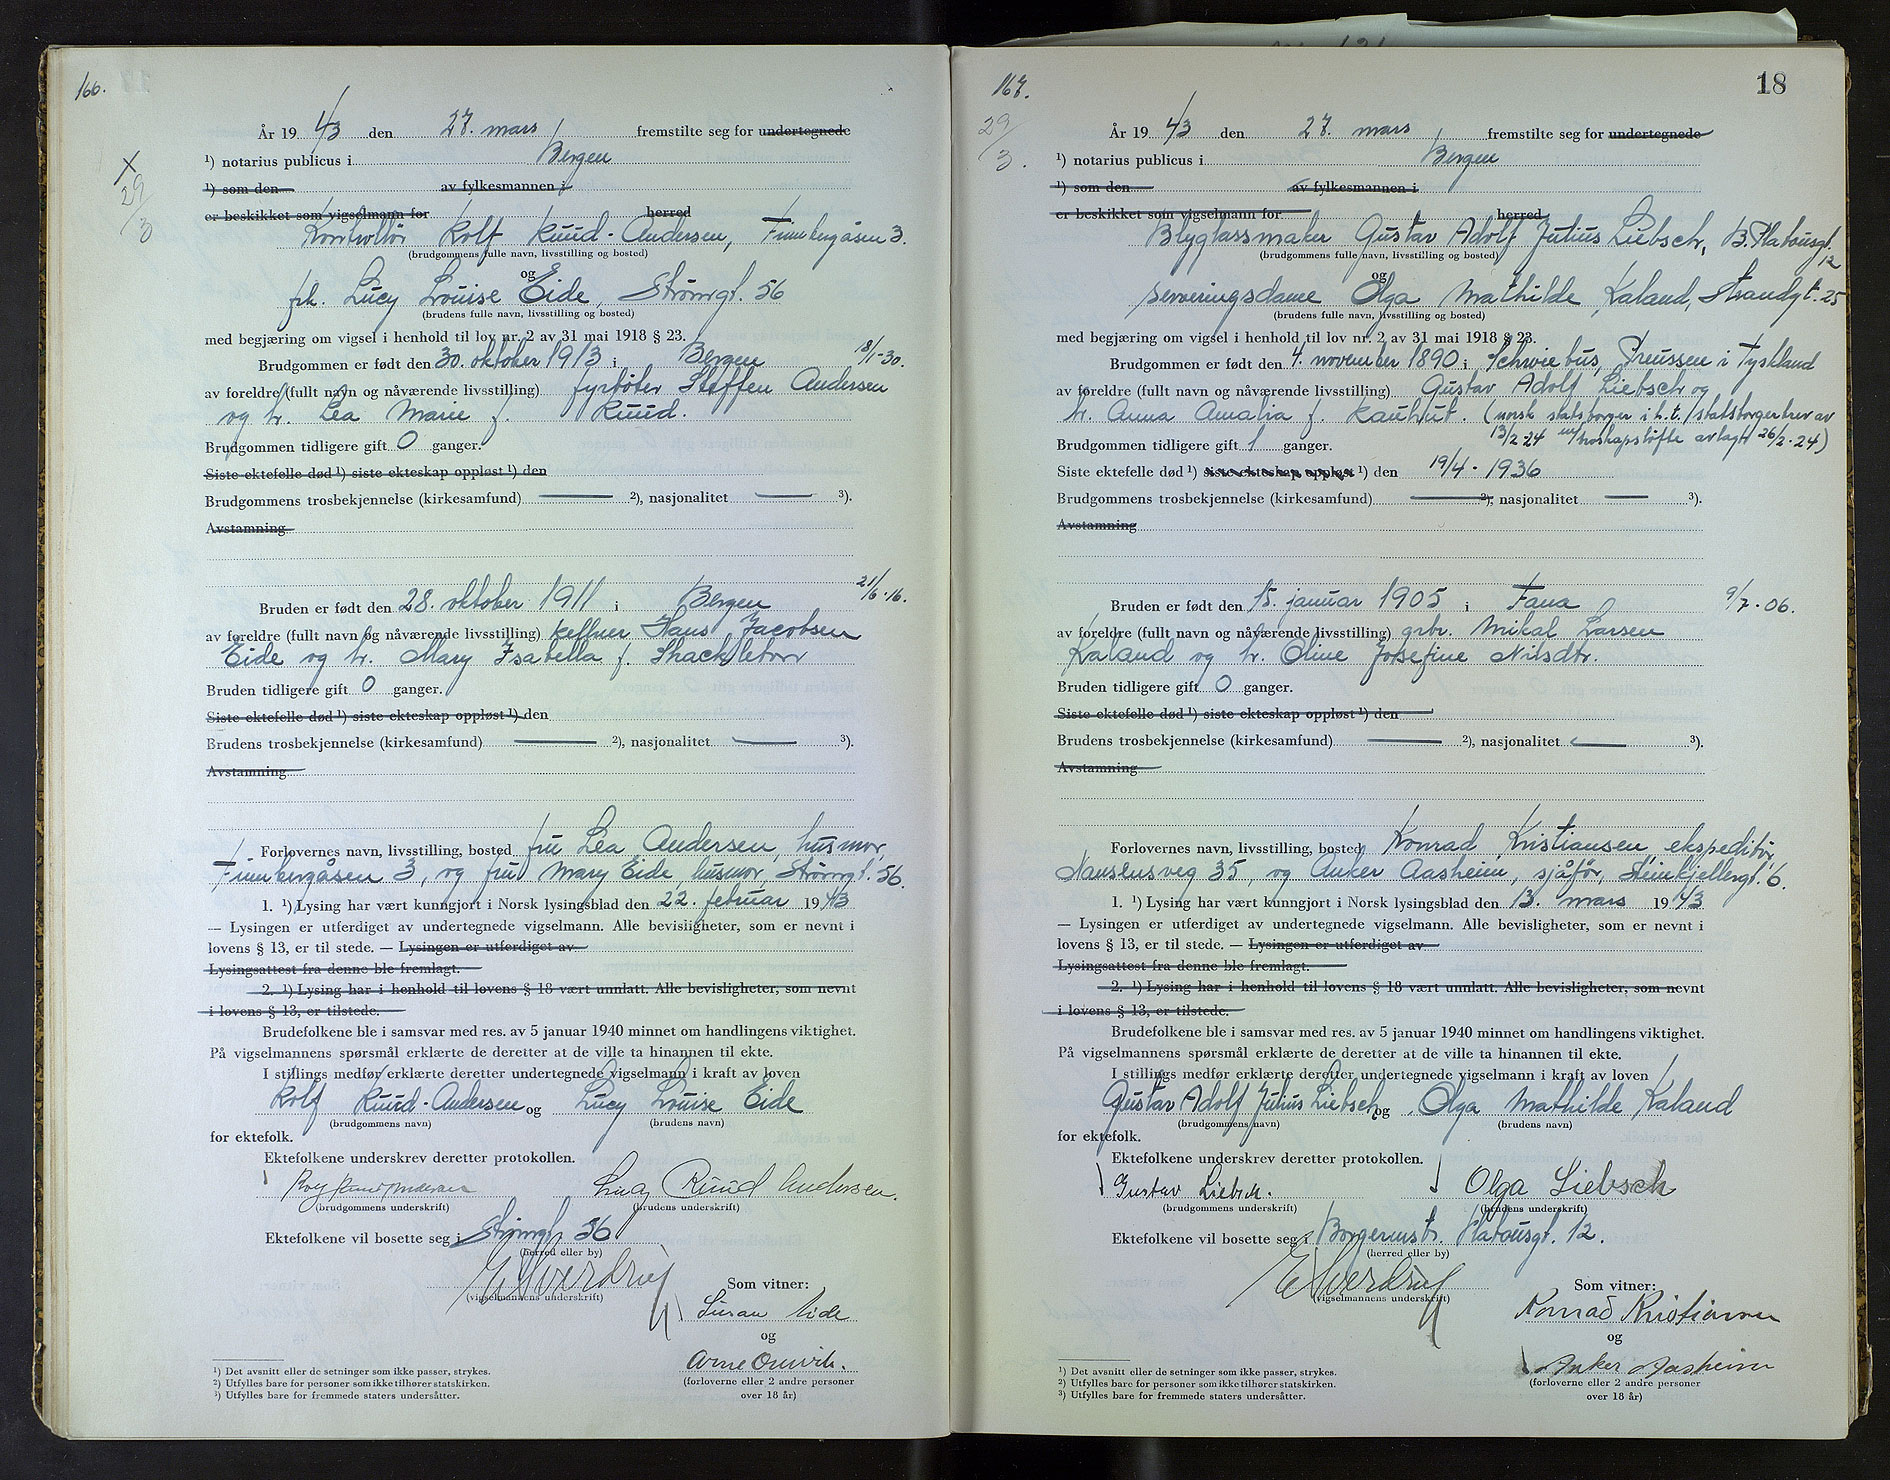 166.
År 19 43 den 27. mars fremstilte seg for undertegnede
¹) notarius publicus i Bergen
¹) som den av fylkesmannen i
er beskikket som vigselmann for herred
X 29/3
Kontrollør Rolf Ruud-Andersen, Finnbergåsen 3.
(brudgommens fulle navn, livsstilling og bosted)
og
frk. Lucy Louise Eide, Strømgt. 56
(brudens fulle navn, livsstilling og bosted)
med begjæring om vigsel i henhold til lov nr. 2 av 31 mai 1918 § 23.
Brudgommen er født den 30. oktober 1913 i Bergen 18/1-30.
av foreldre (fullt navn og nåværende livsstilling) fyrbøter Steffen Andersen
og h. Lea Marie f. Ruud.
Brudgommen tidligere gift 0 ganger.
Siste ektefelle død ¹) siste ekteskap oppløst ¹) den
Brudgommens trosbekjennelse (kirkesamfund) ²), nasjonalitet ³).
Avstamning
Bruden er født den 28. oktober 1911 i Bergen 21/6-16.
av foreldre (fullt navn og nåværende livsstilling) kellner Hans Jacobsen
Eide og h. Mary Isabella f. Shackleton
Bruden tidligere gift 0 ganger.
Siste ektefelle død ¹) siste ekteskap oppløst ¹) den
Brudens trosbekjennelse (kirkesamfund) ²), nasjonalitet ³).
Avstamning
Forlovernes navn, livsstilling, bosted fru Lea Andersen, husmor
Finnbergåsen 3, og fru Mary Eide, husmor, Strømgt. 56.
1. ¹) Lysing har vært kunngjort i Norsk lysingsblad den 22. februar 19 43
— Lysingen er utferdiget av undertegnede vigselmann. Alle bevisligheter, som er nevnt i
lovens § 13, er til stede. — Lysingen er utferdiget av
Lysingsattest fra denne ble fremlagt.
2. ¹) Lysing har i henhold til lovens § 18 vært unnlatt. Alle bevisligheter, som nevnt
i lovens § 13, er tilstede.
Brudefolkene ble i samsvar med res. av 5 januar 1940 minnet om handlingens viktighet.
På vigselmannens spørsmål erklærte de deretter at de ville ta hinannen til ekte.
I stillings medfør erklærte deretter undertegnede vigselmann i kraft av loven
Rolf Ruud-Andersen og Lucy Louise Eide
(brudgommens navn) (brudens navn)
for ektefolk.
Ektefolkene underskrev deretter protokollen.
Lucy Ruud Andersen.
(brudgommens underskrift) (brudens underskrift)
Ektefolkene vil bosette seg i Strømgt. 56
(herred eller by)
(vigselmannens underskrift)
Som vitner:
Susan Eide
og
Arne
(forloverne eller 2 andre personer
over 18 år)
¹) Det avsnitt eller de setninger som ikke passer, strykes.
²) Utfylles bare for personer som ikke tilhører statskirken.
³) Utfylles bare for fremmede staters undersåtter.
167.
18
29/3.
År 19 43 den 27. mars fremstilte seg for undertegnede
¹) notarius publicus i Bergen
¹) som den av fylkesmannen i
er beskikket som vigselmann for herred
Blyglassmaker Gustav Adolf Julius Liebsch, B. Platousgt. 12
(brudgommens fulle navn, livsstilling og bosted)
og
serveringsdame Olga Mathilde Kaland, Strandgt. 25
(brudens fulle navn, livsstilling og bosted)
med begjæring om vigsel i henhold til lov nr. 2 av 31 mai 1918 § 23.
Brudgommen er født den 4. november 1890 i Schwiebus, Preussen i Tyskland
av foreldre (fullt navn og nåværende livsstilling) Gustav Adolf Liebsch og
h. Anna Amalia f. Kauhut. (norsk statsborger i h. t. statsborgerbrev av
13/2-24 m/troskapsløfte avlagt 26/2-24)
Brudgommen tidligere gift 1 ganger.
Siste ektefelle død ¹) siste ekteskap oppløst ¹) den 19/4-1936
Brudgommens trosbekjennelse (kirkesamfund) ²), nasjonalitet ³).
Avstamning
Bruden er født den 15. januar 1905 i Fana 9/7-06.
av foreldre (fullt navn og nåværende livsstilling) grbr. Mikal Larsen
Kaland og h. Oline Josefine Nilsdtr.
Bruden tidligere gift 0 ganger.
Siste ektefelle død ¹) siste ekteskap oppløst ¹) den
Brudens trosbekjennelse (kirkesamfund) ²), nasjonalitet ³).
Avstamning
Forlovernes navn, livsstilling, bosted Konrad Kristiansen ekspeditør,
Nansensveg 35, og Anker Aasheim, sjåfør, Steinkjellergt. 6.
1. ¹) Lysing har vært kunngjort i Norsk lysingsblad den 13. mars 19 43
— Lysingen er utferdiget av undertegnede vigselmann. Alle bevisligheter, som er nevnt i
lovens § 13, er til stede. — Lysingen er utferdiget av
Lysingsattest fra denne ble fremlagt.
2. ¹) Lysing har i henhold til lovens § 18 vært unnlatt. Alle bevisligheter, som nevnt
i lovens § 13, er tilstede.
Brudefolkene ble i samsvar med res. av 5 januar 1940 minnet om handlingens viktighet.
På vigselmannens spørsmål erklærte de deretter at de ville ta hinannen til ekte.
I stillings medfør erklærte deretter undertegnede vigselmann i kraft av loven
Gustav Adolf Julius Liebsch og Olga Mathilde Kaland
(brudgommens navn) (brudens navn)
for ektefolk.
Ektefolkene underskrev deretter protokollen.
Gustav Liebsch. Olga Liebsch
(brudgommens underskrift) (brudens underskrift)
Ektefolkene vil bosette seg i Borgermstr. Platousgt. 12.
(herred eller by)
(vigselmannens underskrift)
Som vitner:
Konrad Kristiansen
og
Anker Aasheim
(forloverne eller 2 andre personer
over 18 år)
¹) Det avsnitt eller de setninger som ikke passer, strykes.
²) Utfylles bare for personer som ikke tilhører statskirken.
³) Utfylles bare for fremmede staters undersåtter.